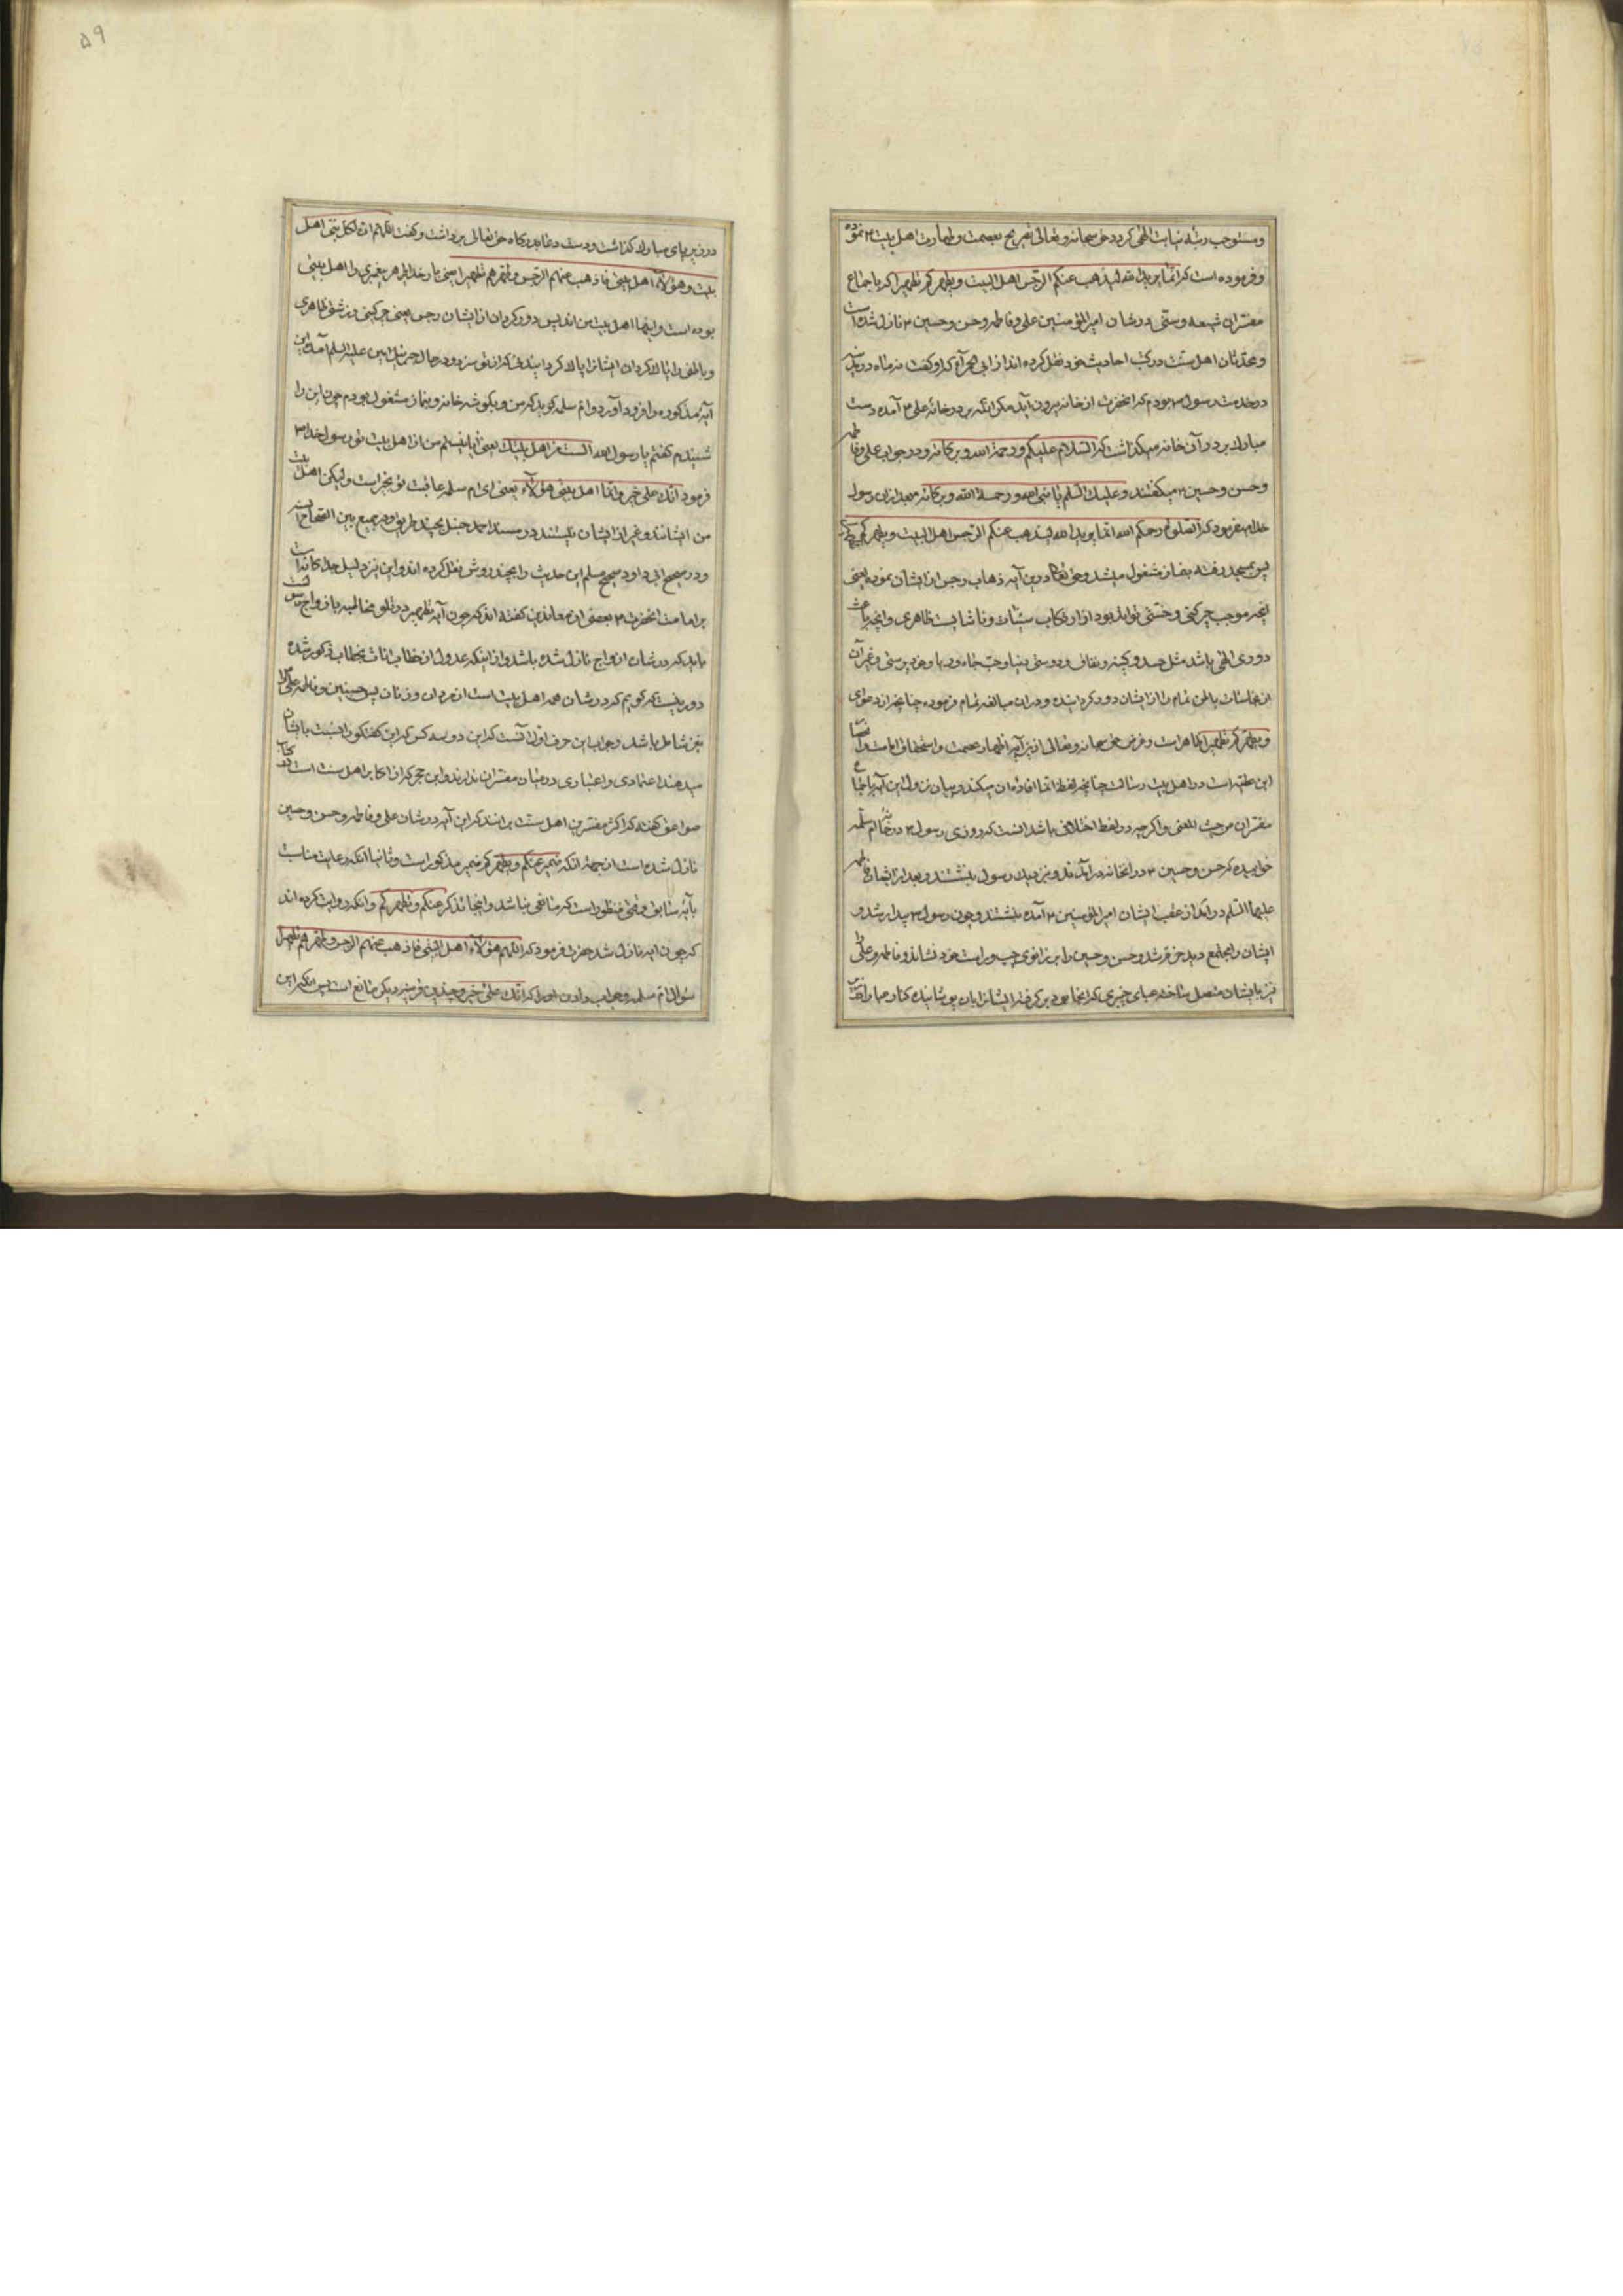 ومستوجب رتبه نیابت الهی کردد حق سبحانه وتعالی تصریح بعصمت وطهارت اهل بیت ۴ نموده
وفرموده است که انما یرید الله لیذهب عنکم الرجس اهل البیت ویطهرکم تطهیرا که باجماع
مفسران شیعه وسنی در شان امیرالمؤمنین علی وفاطمه وحسن وحسین ۴ نازل شده است
ومحدثان اهل سنت در کتب احادیث خود نقل کرده اند از ابی الحمرآء که او کفت نه ماه در مدینه
در خدمت رسول ۴ بودم که آنحضرت از خانه بیرون نیامد مکر آنکه بر در خانه علی ۴ آمده دست
مبارک بر در آن خانه میکذاشت که السلام علیکم ورحمة الله وبرکاته ودر جواب علی وفاطمه
وحسن وحسین ۴ میکفتند وعلیک السلم یا نبی الله ورحمة الله وبرکاته وبعد ازان رسول
خدا ۴ میفرمود که الصلوة رحمکم الله انما یرید الله لیذهب عنکم الرجس اهل البیت ویطهرکم
پس بمسجد رفته بنماز مشغول میشد وحق تعالی درین آیه ذهاب رجس از ایشان نموده یعنی
آنچه موجب چرکنی وخبثی تواند بود از ارتکاب سیئات وناشایست ظاهری وآنچه باعث
دوری الهی باشد مثل حسد وکینه ونفاق ودوستی دنیا وحب جاه وریا وخود پرستی وغیر آن
از نجاسات باطن تمام را از ایشان دور کردانیده ودران مبالغه تمام فرموده چنانچه از فحوای
ویطهرکم تطهیرا ظاهر است وغرض حق سبحانه وتعالی ازین آیه اظهار عصمت واستحقاق امامت
این طبقه است در اهل بیت رسالت چنانچه لفظ انما افاده آن میکند وبیان نزول این آیه باجماع
مفسران من حیث المعنی واکرچه در لفظ اختلافی باشد آنست که روزی رسول ۴ در خانه ام سلمه
خوابیده که حسن وحسین ۴ در آنخانه درآمدند ونزدیک رسول بنشستند وبعد از ایشان فاطمه
علیها السلم درآمد از عقب ایشان امیرالمؤمنین ۴ آمده بنشستند وچون رسول ۴ بیدار شد و
ایشان را مجتمع دید خوشد وحسن وحسین را بر زانوی چپ وراست خود نشاند وفاطمه وعلی را
نیز بایشان متصل ساخته عبای خیبری که آنجا بود بر کرفته ایشانرا بان پوشانیده کنار
در زیر پای مبارک کذاشت ودست دعا بدرکاه حق تعالی برداشت وکفت اللهم ان لکل نبی اهل
بیت وهؤلآء اهل بیتی فاذهب عنهم الرجس وطهرهم تطهیرا یعنی بار خدایا هر پیغمبری را اهل بیتی
بوده است واینها اهل بیت من اند پس دور کردان از ایشان رجس یعنی چرکینی وزشتی ظاهری
وباطنی را وپاک کردان ایشانرا پاک کردانیدنی که از تو سزد ودر حال جبرئیل امین علیه السلم آمد این
آیه مذکوره را فرود آورد وام سلمه کوید که من در یکوشه خانه ونماز مشغول بودم چون این را
شنیدم کفتم یا رسول الله الست من اهل بیتک یعنی آیا نیستم من از اهل بیت تو رسول خدا ۴
فرمود انک علی خیر وانما اهل بیتی هؤلآء یعنی ای ام سلمه عاقبت تو بخیر است ولیکن اهل بیت
من ایشانند وغیر از ایشان نیستند در مسند احمد حنبل بچند طریق ودر جمع بین الصحاح السته
ودر صحیح ابی داود وصحیح مسلم این حدیث را بچند روش نقل کرده اند واین نیز دلیل جداکانه است
بر امامت آنحضرت ۴ بعضی از معاندین کفته اند که چون آیه تطهیر در تلو مخاطبه بازواج رسول است
باید که در شان ازواج نازل شده باشد واز اینکه عدول از خطاب اناث بخطاب ذکور شده
دور نیست که کویم که در شان همه اهل بیت است از مردان وزنان پس حسنین وفاطمه وعلی را
نیز شامل باشد وجواب این حرف اولا آنست که این دو سه کس که این کفتکو را نسبت بایشان
میدهند اعتمادی واعتباری در میان مفسران ندارند وابن حجر که از اکابر اهل سنت است در کتاب
صواعق کفته که اکثر مفسرین اهل سنت برانند که این آیه در شان علی وفاطمه وحسن وحسین
نازل شده است از جهة آنکه ضمیر عنکم ویطهرکم ضمیر مذکور است وثانیا آنکه رعایت مناسبت
بآیه سابق وقتی منظور است که منافی نباشد واینجا تذکیر عنکم ویطهرکم وآنکه روایت کرده اند
که چون آیه نازل شد حضرت فرمود که اللهم هؤلآء اهل بیتی فاذهب عنهم الرجس وطهرهم تطهیرا
سؤال ام سلمه وجواب دادن او را که انک علی خیر وچندین قرینه دیکر مانع است پس آنکه این
۵۹